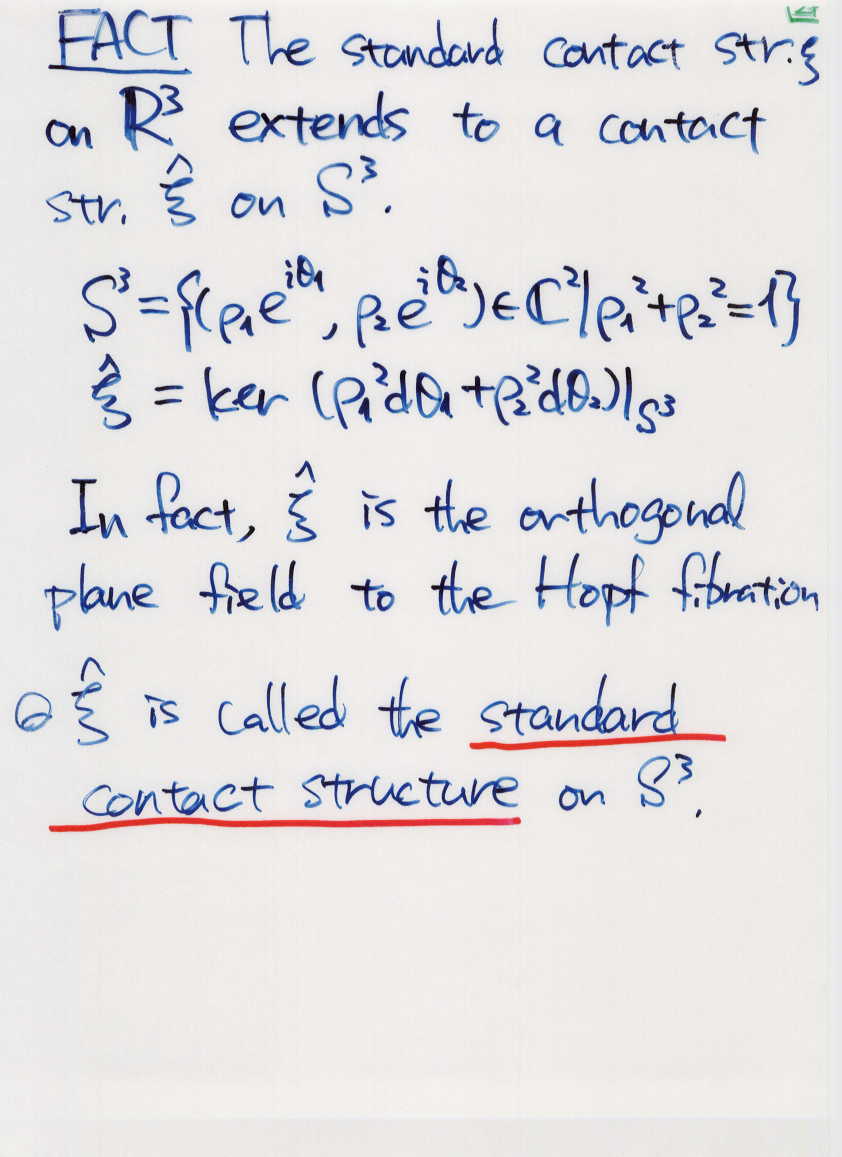 FACT The standard contact str. ξ
on ℝ³ extends to a contact
str. ξ̂ on S³.
S³ = {(ρ₁e^{iθ₁}, ρ₂e^{iθ₂}) ∈ ℂ² | ρ₁² + ρ₂² = 1}
ξ̂ = ker (ρ₁²dθ₁ + ρ₂²dθ₂)|_{S³}
In fact, ξ̂ is the orthogonal
plane field to the Hopf fibration
ξ̂ is called the standard
contact structure on S³.